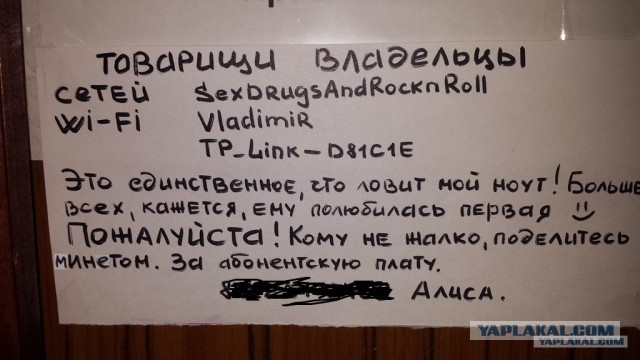 ТОВАРИЩИ ВЛАДЕЛЬЦЫ
СЕТЕЙ SexDRugsAndRocknRoll
Wi-Fi VladimiR
TP_Link-D81C1E
Это единственное, что ловит мой ноут! Больше
всех, кажется, ему полюбилась первая ☺
Пожалуйста! Кому не жалко, поделитесь
минетом. За абонентскую плату.
Алиса.
YAPLAKAL.COM
YAPLAKAL.COM